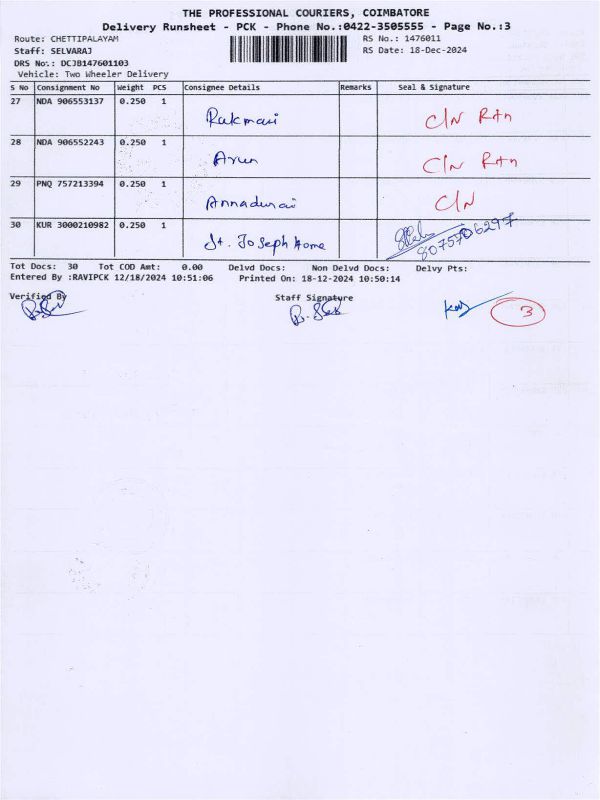 THE PROFESSIONAL COURIERS, COIMBATORE
Delivery Runsheet - PCK - Phone No.:0422-3505555 - Page No.:3
Route: CHETTIPALAYAM RS No.: 1476011
Staff: SELVARAJ RS Date: 18-Dec-2024
DRS No.: DCJB147601103
Vehicle: Two Wheeler Delivery
S No Consignment No Weight PCS Consignee Details Remarks Seal & Signature
27 NDA 906553137 0.250 1 Rukmani C/N Rtn
28 NDA 906552243 0.250 1 Arun C/N Rtn
29 PNQ 757213394 0.250 1 Annadurai C/N
30 KUR 3000210982 0.250 1 St. Joseph Home 8075706297
Tot Docs: 30 Tot COD Amt: 0.00 Delvd Docs: Non Delvd Docs: Delvy Pts:
Entered By :RAVIPCK 12/18/2024 10:51:06 Printed On: 18-12-2024 10:50:14
Verified By Staff Signature
3